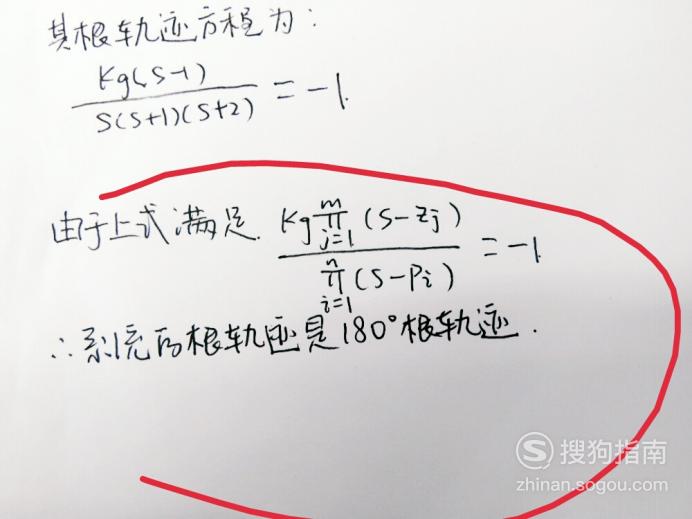 其根轨迹方程为:
Kg(s-1)
S(S+1)(S+2)
= -1.
由于上式满足.
Kg m∏j=1 (S-Zj)
n∏i=1 (S-Pi)
= -1
∴系统的根轨迹是180°根轨迹.
搜狗指南
zhinan.sogou.com